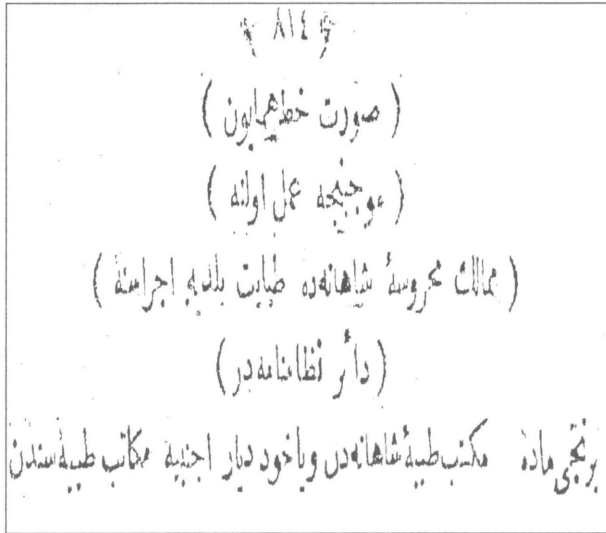 ﴿ ٨١٤ ﴾
( صورت خط همايون )
( موجبنجه عمل اولنه )
( ممالك محروسهٔ شاهانه‌ده طبابت بلديه اجراسنه )
( دائر نظامنامه‌در )
برنجی ماده مكتب طبيهٔ شاهانه‌دن وياخود ديار اجنبيه مكاتب طبيه‌سندن